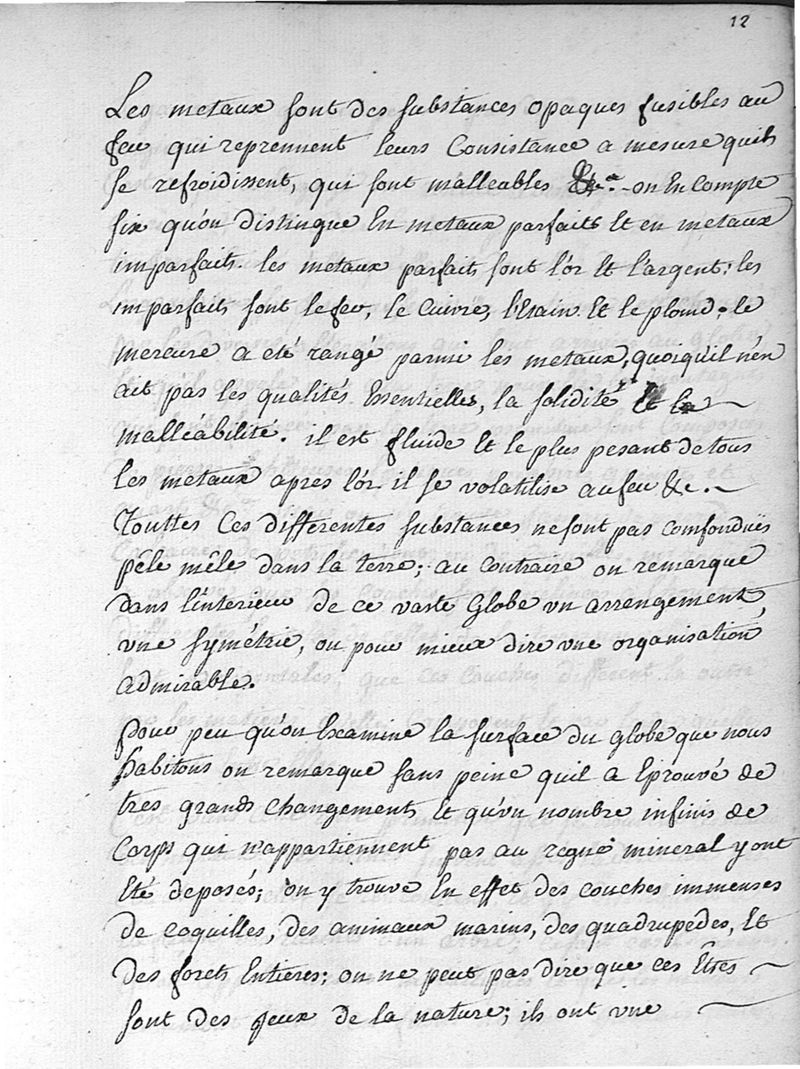 12
Les metaux sont des substances opaques fusibles au
feu qui reprennent leurs Consistance a mesure quils
se refroidissent, qui sont malleables &ca. on En Compte
six qu'on distingue En metaux parfaits Et en metaux
imparfaits. les metaux parfaits sont l'or Et l'argent; les
imparfaits sont le fer, le Cuivre, l'Etain Et le plomb. le
mercure a eté rangé parmi les metaux, quoiqu'il n'en
ait pas les qualités Essentielles, la solidité et la
malléabilité. il est fluide Et le plus pesant de tous
les metaux apres l'or. il se volatilise au feu &c.
Touttes Ces differentes substances ne sont pas comfonduës
pêle mêle dans la terre; au contraire on remarque
dans l'interieur de ce vaste Globe un arrengement,
une symétrie, ou pour mieux dire une organisation
admirable.
pour peu qu'on Examine la surface du globe que nous
habitons on remarque sans peine quil a Eprouvé de
tres grands Changements Et qu'un nombre infinis de
Corps qui n'appartiennent pas au regne mineral y ont
Eté deposés; on y trouve En effet des couches immenses
de coquilles, des animaux marins, des quadrupédes, Et
des forets Entieres; on ne peut pas dire que ces Êtres
sont des jeux de la nature; ils ont une